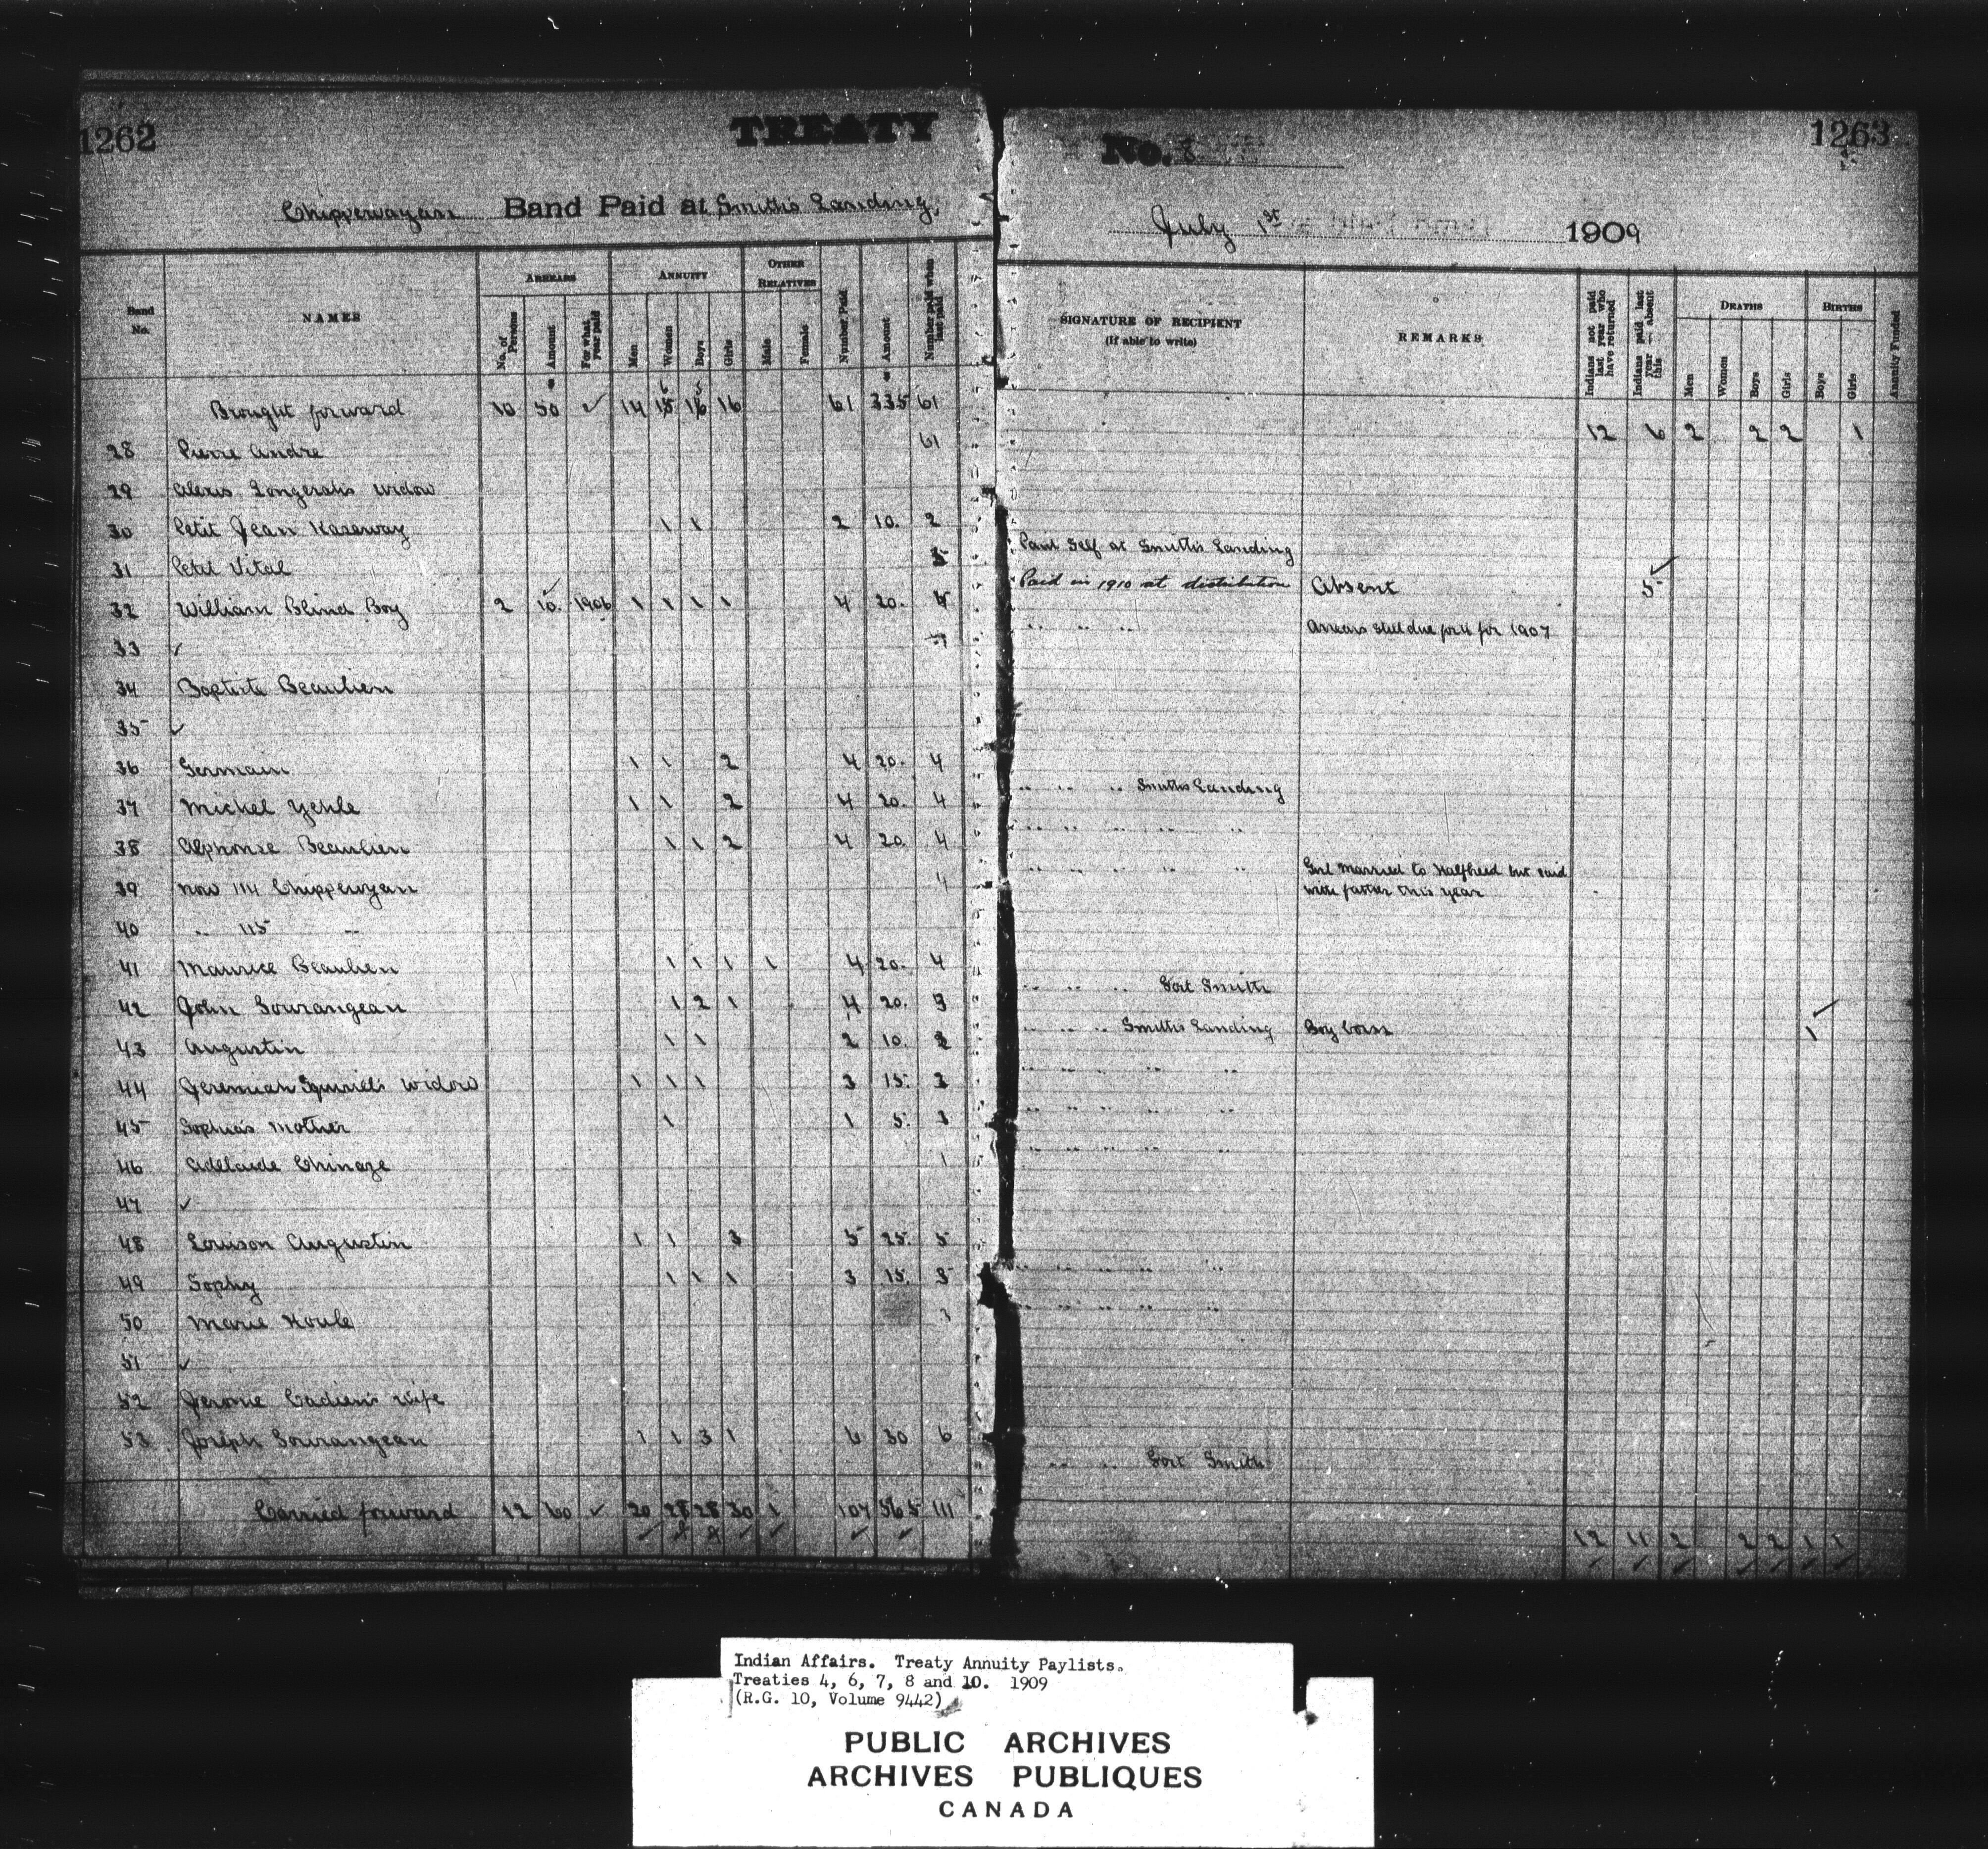 1262
TREATY
No. 8
1263
Chippewayan Band Paid at Smith's Landing,
July 1st 1909
Band No.
NAMES
ARREARS
No. of Persons
Amount
For what year paid
ANNUITY
Men
Women
Boys
Girls
OTHER RELATIVES
Male
Female
Number Paid
Amount
Number paid when last paid
SIGNATURE OF RECIPIENT
(If able to write)
REMARKS
Indians not paid last year who have returned
Indians paid last year — absent this
DEATHS
Men
Women
Boys
Girls
BIRTHS
Boys
Girls
Annuity Funded
Brought forward 10 50 ✓ 14 15 16 16 61 335 61
12 6 2 2 2 1
28 Pierre Andre 61
29 Alexis widow
30 Petit Jean Kaseway 1 1 2 10. 2
Paid Self at Smith's Landing
31 Petit Vital 5
Paid in 1910 at distribution Absent 5
32 William Blind Boy 2 10. 1906 1 1 1 1 4 20. 4
" " " Arrears still due for 4 for 1907
33 ✓
34 Baptiste Beaulieu
35 ✓
36 Germain 1 1 2 4 20. 4
" " " Smith's Landing
37 Michel Yehle 1 1 2 4 20. 4
" " " " "
38 Alphonse Beaulieu 1 1 2 4 20. 4
" " " " " Girl married to Halfbreed but paid
with father this year
39 now 114 Chippewyan 4
40 " 115 "
41 Maurice Beaulieu 1 1 1 1 4 20. 4
" " " Fort Smith
42 John Sourangeau 1 2 1 4 20. 3
" " " Smith's Landing Boy born 1
43 Augustin 1 1 2 10. 2
" " " " "
44 Jeremiah Squirrel's widow 1 1 1 3 15. 3
" " " " "
45 Sophia's Mother 1 1 5.
" " " " "
46 Adelaide Chinaze 1
47 ✓
48 Louison Augustin 1 1 3 5 25. 5
" " " " "
49 Sophy 1 1 1 3 15. 3
" " " " "
50 Marie Houle 1
51 ✓
52 Jerome Cadien's wife
53 Joseph Sourangeau 1 1 3 1 6 30 6
" " Fort Smith
Carried forward 12 60 ✓ 20 28 28 30 1 107 565 111
12 11 2 2 2 1 1
Indian Affairs. Treaty Annuity Paylists.
Treaties 4, 6, 7, 8 and 10. 1909
(R.G. 10, Volume 9442)
PUBLIC ARCHIVES
ARCHIVES PUBLIQUES
CANADA